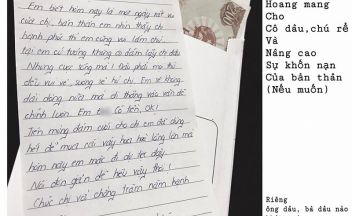 Em biết hôm nay là một ngày rất vui
của chị, bản thân em nhìn thấy chị
hạnh phúc thì em cũng vui lắm chị.
Tại em cứ tưởng không có đám lấy chị đâu
Nhưng cuộc sống mà! Đâu phải mọi thứ
đều vui vẻ, sướng sẽ hở chị. Em sẽ không
dài dòng nữa mà đi thẳng vào vấn đề
chính luôn. Em có tiền, OK!
Tiền mừng đám cưới cho chị em đã dùng
hết để mua cái váy hoa hoè lồng lộn mà
hôm nay em mặc đi ok tại đây
Nói đơn giản dễ hiểu vậy thôi!
Chúc chị và chồng trăm năm hạnh
Hoang mang
Cho
Cô dâu,chú rể
Và
Nâng cao
Sự khốn nạn
Của bản thân
(Nếu muốn)
Riêng
ông dâu, bà dâu nào